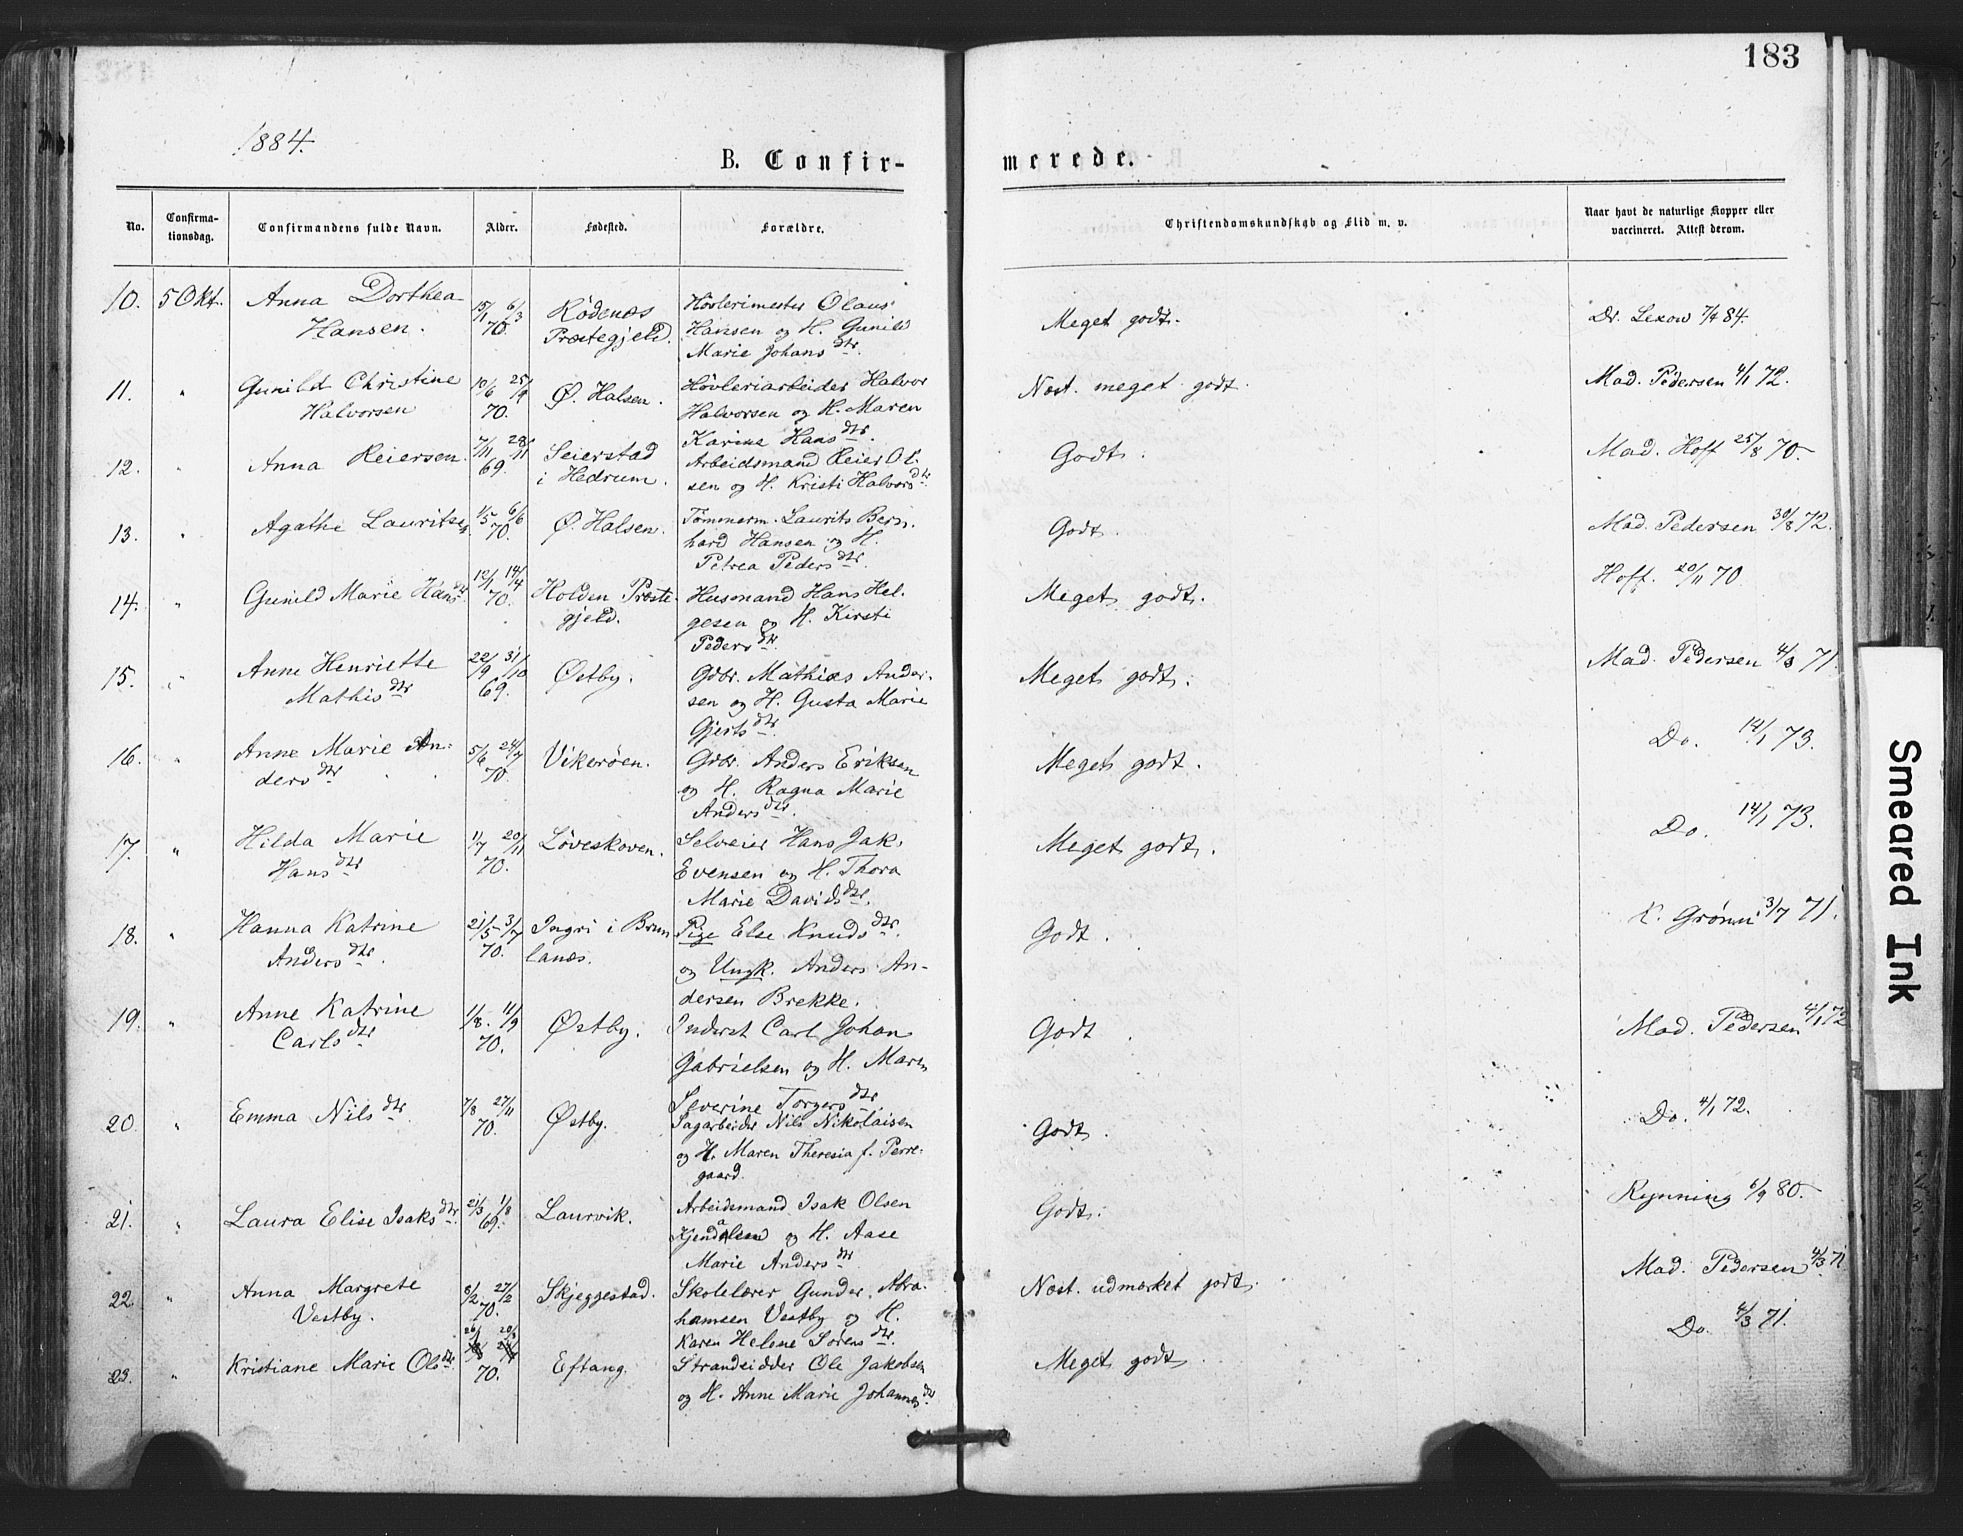 183
1884.
B. Confir-
merede.
No.
Confirma-
tionsdag.
Confirmandens fulde Navn.
Alder.
Fødested.
Forældre.
Christendomskundskab og Flid m. v.
Naar havt de naturlige Kopper eller
vaccineret. Attest derom.
10. 5 Okt. Anna Dorthea 15/1 6/3 Rödenæs Hövlerimester Olaus
Hansen. 70. Præstegjeld. Hansen og H. Gunild
Marie Johansdtr.
Meget godt. Dr. Lexow 7/4 84.
11. " Gunild Christine 10/6 25/9 Ø. Halsen. Hövleriarbeider Halvor
Halvorsen 70. Halvorsen og H. Maren
Karine Hansdtr.
Næst. meget godt. Mad. Pedersen 4/1 72.
12. " Anna Reiersen. 7/11 28/11 Seierstad Arbeidsmand Reier Ol.
69. i Hedrum. sen og H. Kristi Halvorsdtr.
Godt. Mad. Hoff 25/8 70.
13. " Agathe Lauritsen 1/5 6/6 Ø. Halsen. Tömmerm. Laurits Bern.
70. hard Hansen og H.
Petrea Pedersdtr.
Godt. Mad. Pedersen 30/8 72.
14. " Gunild Marie Hansdtr 12/1 14/4 Holden Præste- Husmand Hans Hel.
70. gjeld. gesen og H. Kirsti
Pedersdtr.
Meget godt. Hoff. 20/11 70
15. " Anne Henriette 22/9 31/10 Østby. Gdbr. Mathias Ander.
Mathisdtr 69. sen og H. Gusta Marie
Gjertsdtr.
Meget godt. Mad. Pedersen 4/3 71.
16. " Anne Marie An= 5/6 24/7 Vikerøen. Gdbr. Anders Eriksen
dersdtr. 70. og H. Ragna Marie
Andersdtr.
Meget godt. Do. 14/1 73.
17. " Hilda Marie 1/7 20/11 Løveskoven. Selveier Hans Jak.
Hansdtr 70. Evensen og H. Thora
Marie Davidsdtr.
Meget godt. Do. 14/1 73.
18. " Hanna Katrine 21/5 3/7 Ingri i Brun Pige Else Knudsdtr.
Andersdtr. 70. lanæs. og Ungk. Anders An-
dersen Brekke.
Godt. K. Grønn 3/7 71.
19. " Anne Katrine 1/8. 11/9 Østby. Inderst Carl Johan
Carlsdtr 70. Gabrielsen og H. Maren
Severine Torgersdtr
Godt Mad. Pedersen 4/1 72
20. " Emma Nilsdtr. 7/8 27/11 Østby. Sagarbeider Nils Nikolaisen
70. og H. Maren Theresia f. Perre-
gaard.
Godt. Do. 4/1 72.
21. " Laura Elise Isaksdtr. 21/3 1/8 Laurvik. Arbeidsmand Isak Olsen
69. og H. Aase
Marie Andersdtr
Godt. Kynning 6/9 80.
22. " Anna Margrete 8/2 27/2 Skjeggestad. Skolelærer Gunder Abra-
Vestby. 70. hamsen Vestby og H.
Karen Helene Sörensdtr.
Næst. udmærket godt. Mad. Pedersen 4/3 71
23. " Kristiane Marie Olsdtr. 70. Eftang. Strandsidder Ole Jakobsen
og H. Anne Marie Johannesdtr.
Meget godt. Do. 4/3 71.
Smeared Ink